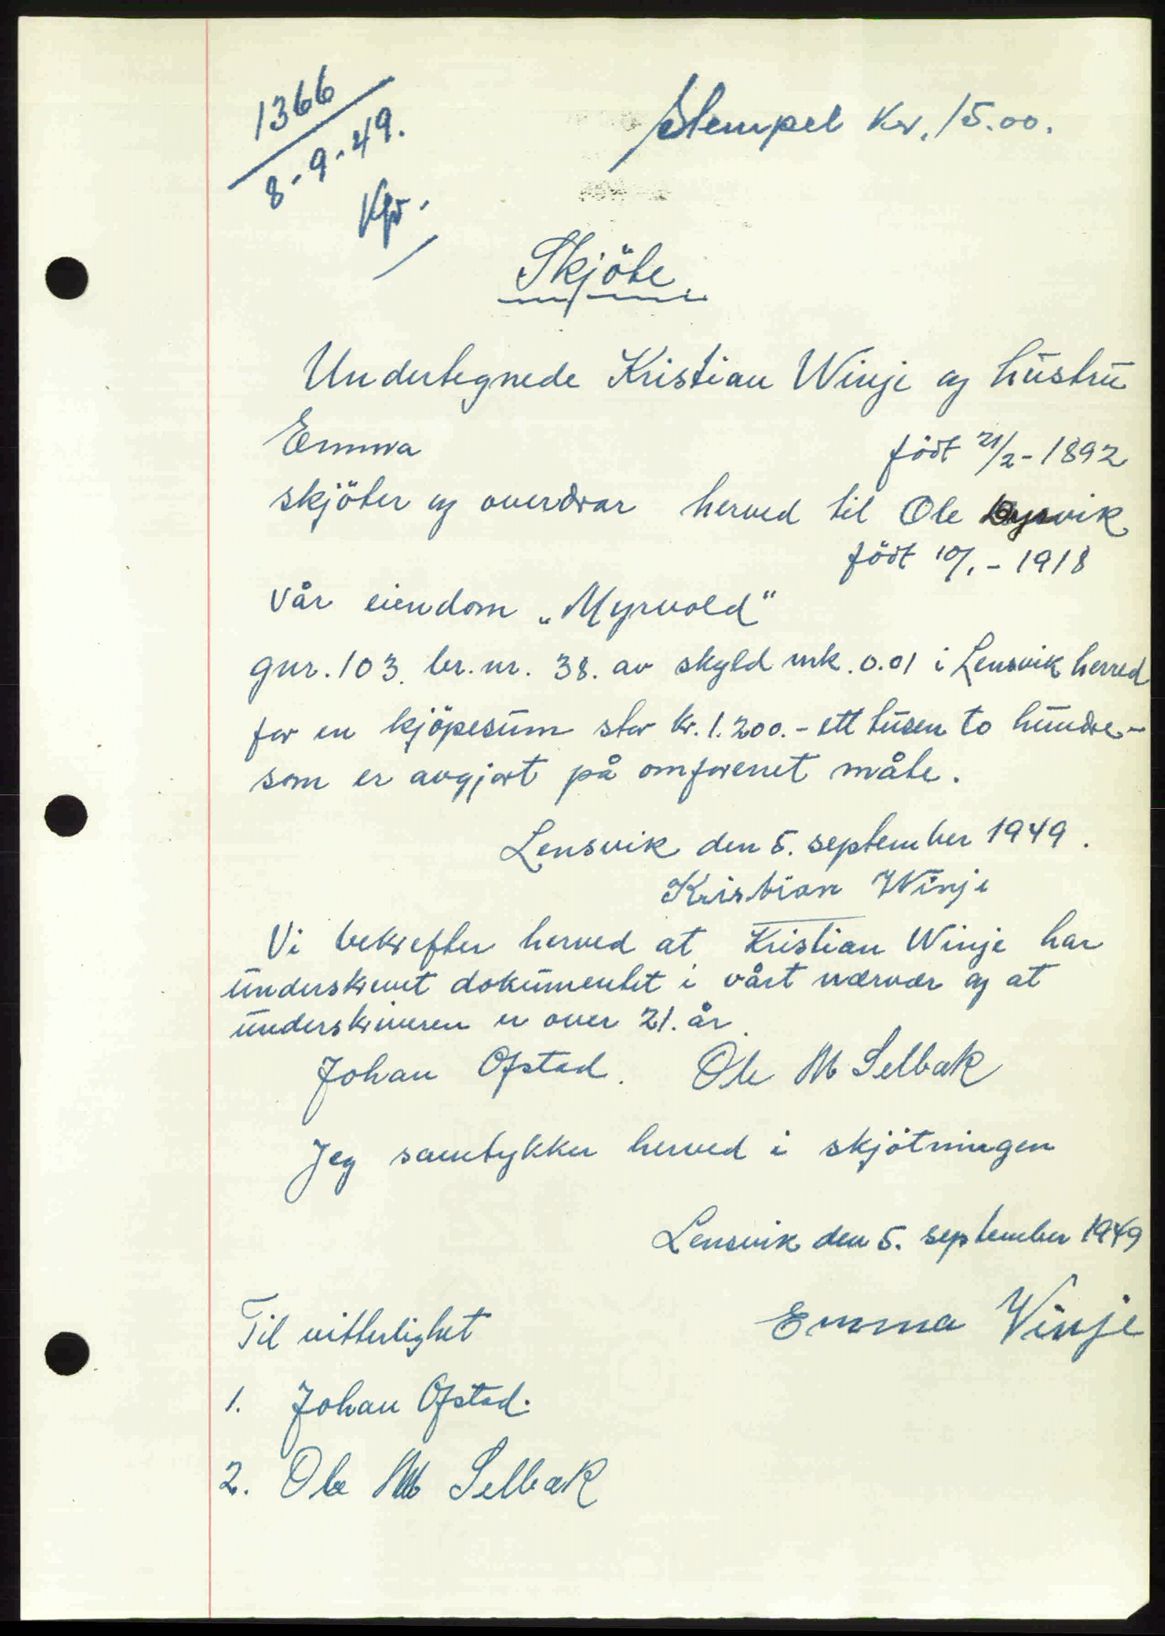 1366
8-9-49.
Stempel Kr. 15.00.
Skjöte
Undertegnede Kristian Winje og hustru
Emma född 21/2-1892
skjöter og overdrar herved til Ole
född 10/1-1918
vår eiendom „Myrvold"
gnr. 103. br. nr. 38. av skyld mrk. 0.01 i Lensvik herred
for en kjöpesum stor kr. 1.200.- ett tusen to hundre-
som er avgjort på omforenet måte.
Lensvik den 5. september 1949.
Kristian Winje
Vi bekrefter herved at Kristian Winje har
underskrevet dokumentet i vårt nærvær og at
underskriveren er over 21. år.
Johan Ofstad. Ole M Selbæk
Jeg samtykker herved i skjötningen
Lensvik den 5. september 1949
Emma Vinje
Til vitterlighet
1. Johan Ofstad.
2. Ole M Selbæk